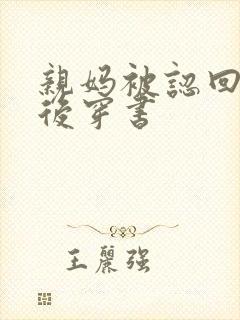 親媽被認回
後穿書
王麗强